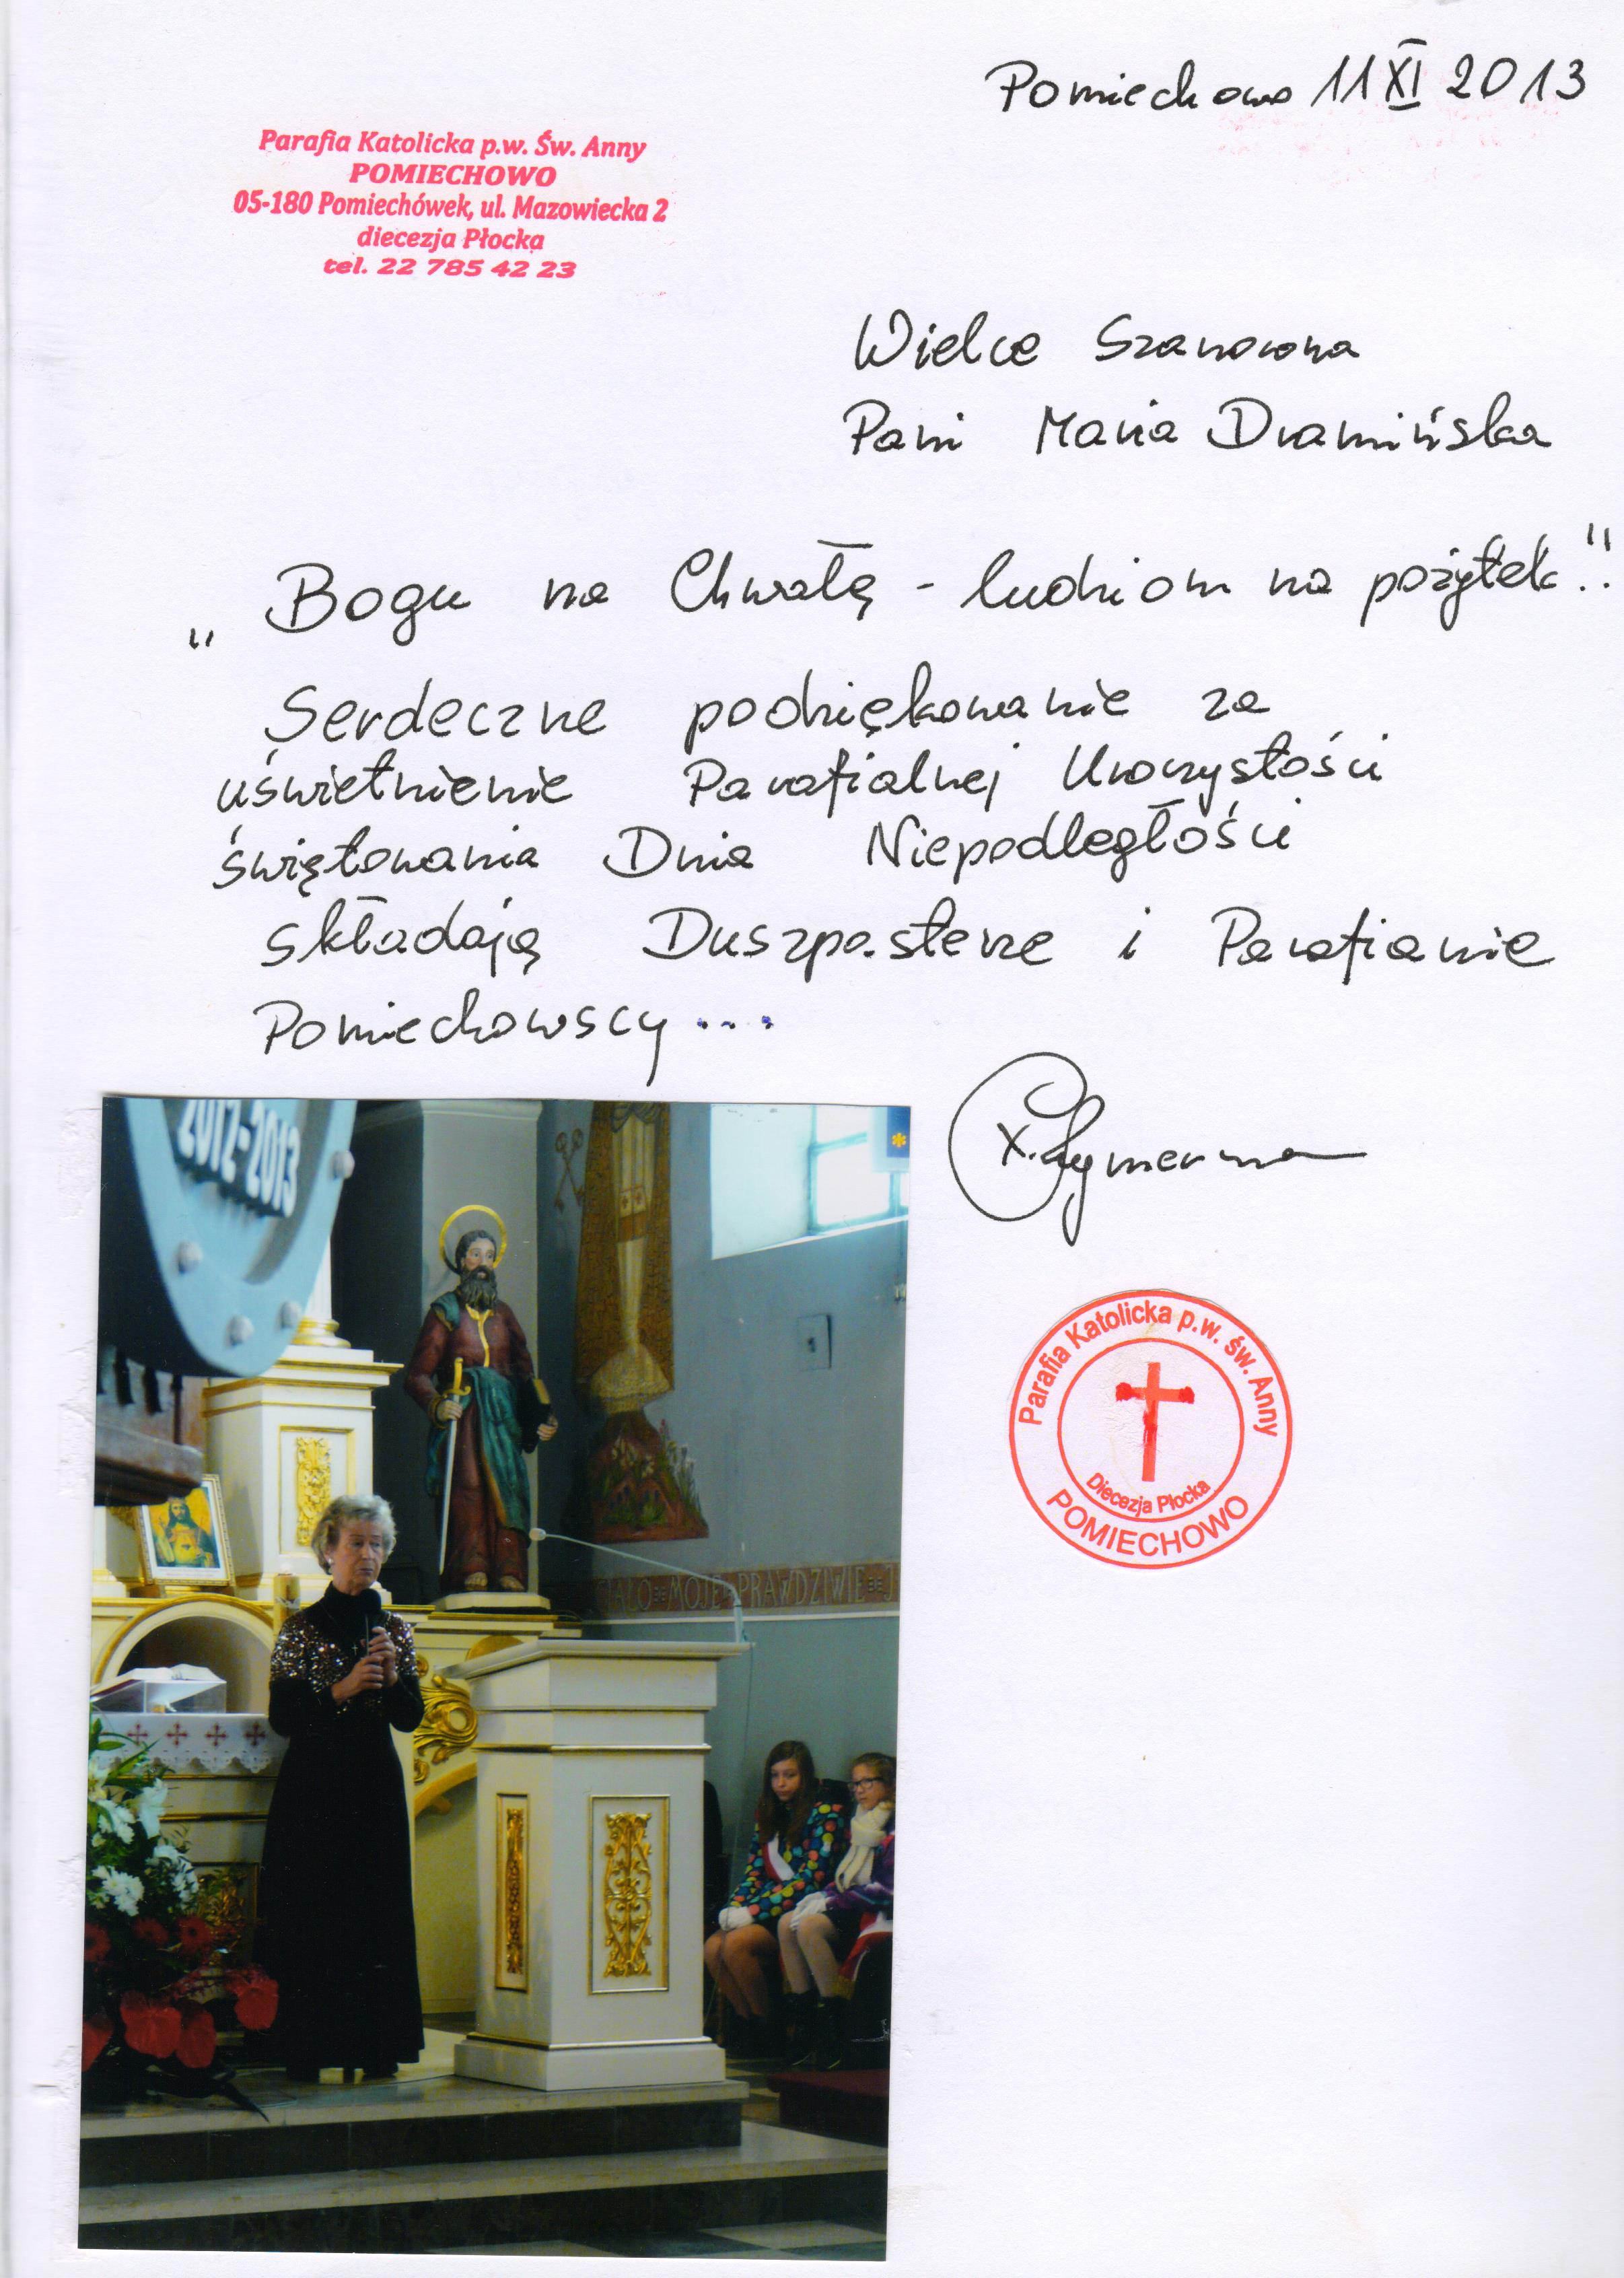 Pomiechowo 11 XI 2013
Parafia Katolicka p.w. Św. Anny
POMIECHOWO
05-180 Pomiechówek, ul. Mazowiecka 2
diecezja Płocka
tel. 22 785 42 23
Wielce Szanowna
Pani Maria Dramińska
„Bogu na Chwałę - ludziom na pożytek".
Serdeczne podziękowanie za
uświetnienie Parafialnej Uroczystości
świętowania Dnia Niepodległości
składają Duszpasterze i Parafianie
Pomiechowscy ...
2012-2013
CIAŁO MOJE PRAWDZIWIE JE
Parafia Katolicka p.w. św. Anny
Diecezja Płocka
POMIECHOWO